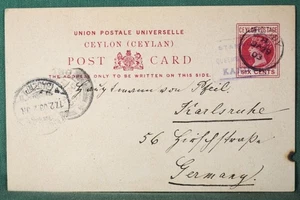 UNION POSTALE UNIVERSELLE
CEYLON (CEYLAN)
POST CARD
THE ADDRESS ONLY TO BE WRITTEN ON THIS SIDE.
CEYLON POSTAGE
SIX CENTS
Hauptmann von Pfeil
Karlsruhe
56 Hirschstraße
Germany.